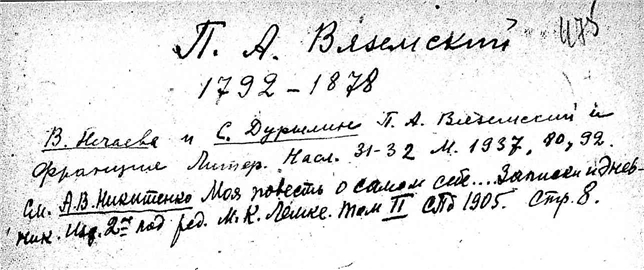 П. А. Вяземский 475
1792-1878
В. Нечаева и С. Дурылин П. А. Вяземский и
Франция Литер. Насл. 31-32 М. 1937, 80, 92.
См. А.В. Никитенко Моя повесть о самом себе... Записки и днев-
ник. Изд. 2ое под ред. М.К. Лемке. Том II СПб 1905. Стр. 8.